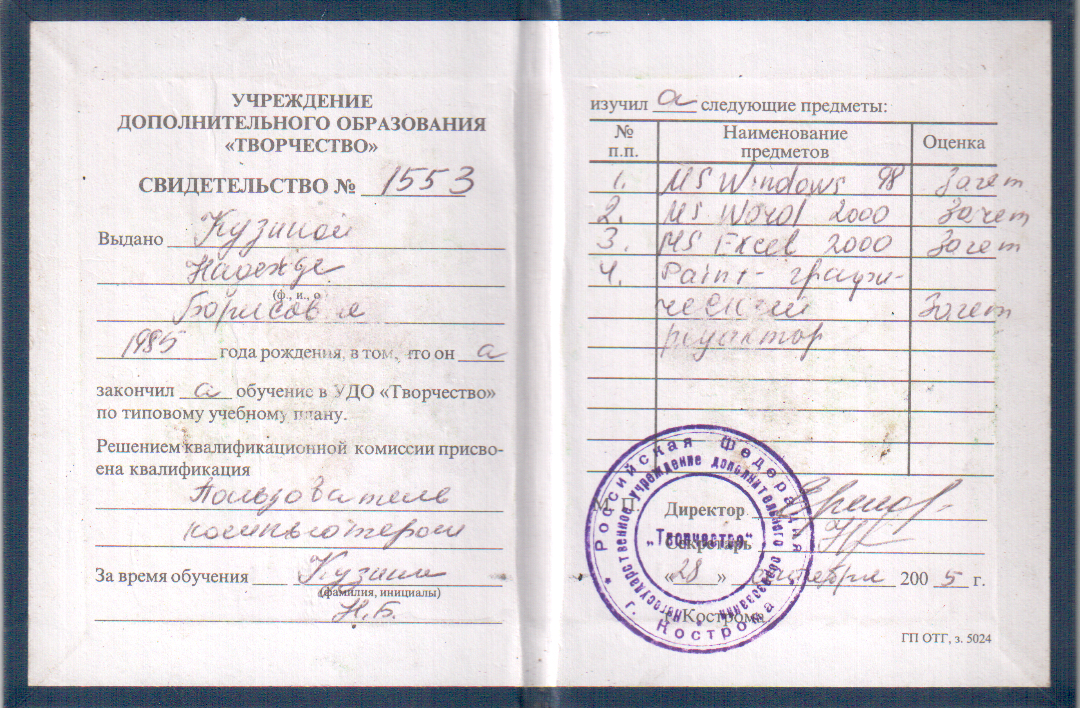 УЧРЕЖДЕНИЕ
ДОПОЛНИТЕЛЬНОГО ОБРАЗОВАНИЯ
«ТВОРЧЕСТВО»
СВИДЕТЕЛЬСТВО № 1553
Выдано Кузиной
Надежде
(ф., и., о
Борисовне
1985 года рождения, в том, что он а
закончил а обучение в УДО «Творчество»
по типовому учебному плану.
Решением квалификационной комиссии присво-
ена квалификация
Пользователь
компьютером
За время обучения Кузина
(фамилия, инициалы)
Н.Б.
изучил а следующие предметы:
№ п.п. Наименование предметов Оценка
1. MS Windows 98 Зачет
2. MS Word 2000 Зачет
3. MS Excel 2000 Зачет
4. Paint - графи-
ческий Зачет
редактор
М. П.
Директор
Секретарь
«28» октября 2005 г.
г. Кострома
ГП ОТГ, з. 5024
Российская Федерация
Негосударственное учреждение дополнительного образования
„Творчество“
г. Кострома